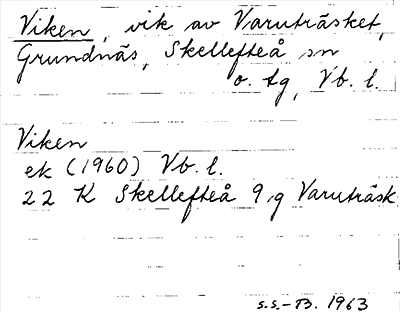 Viken, vik av Varuträsket,
Grundnäs, Skellefteå sn
o. tg, Vb. l.
Viken
ek (1960) Vb. l.
22 K Skellefteå 9 g Varuträsk
S.S.-B. 1963